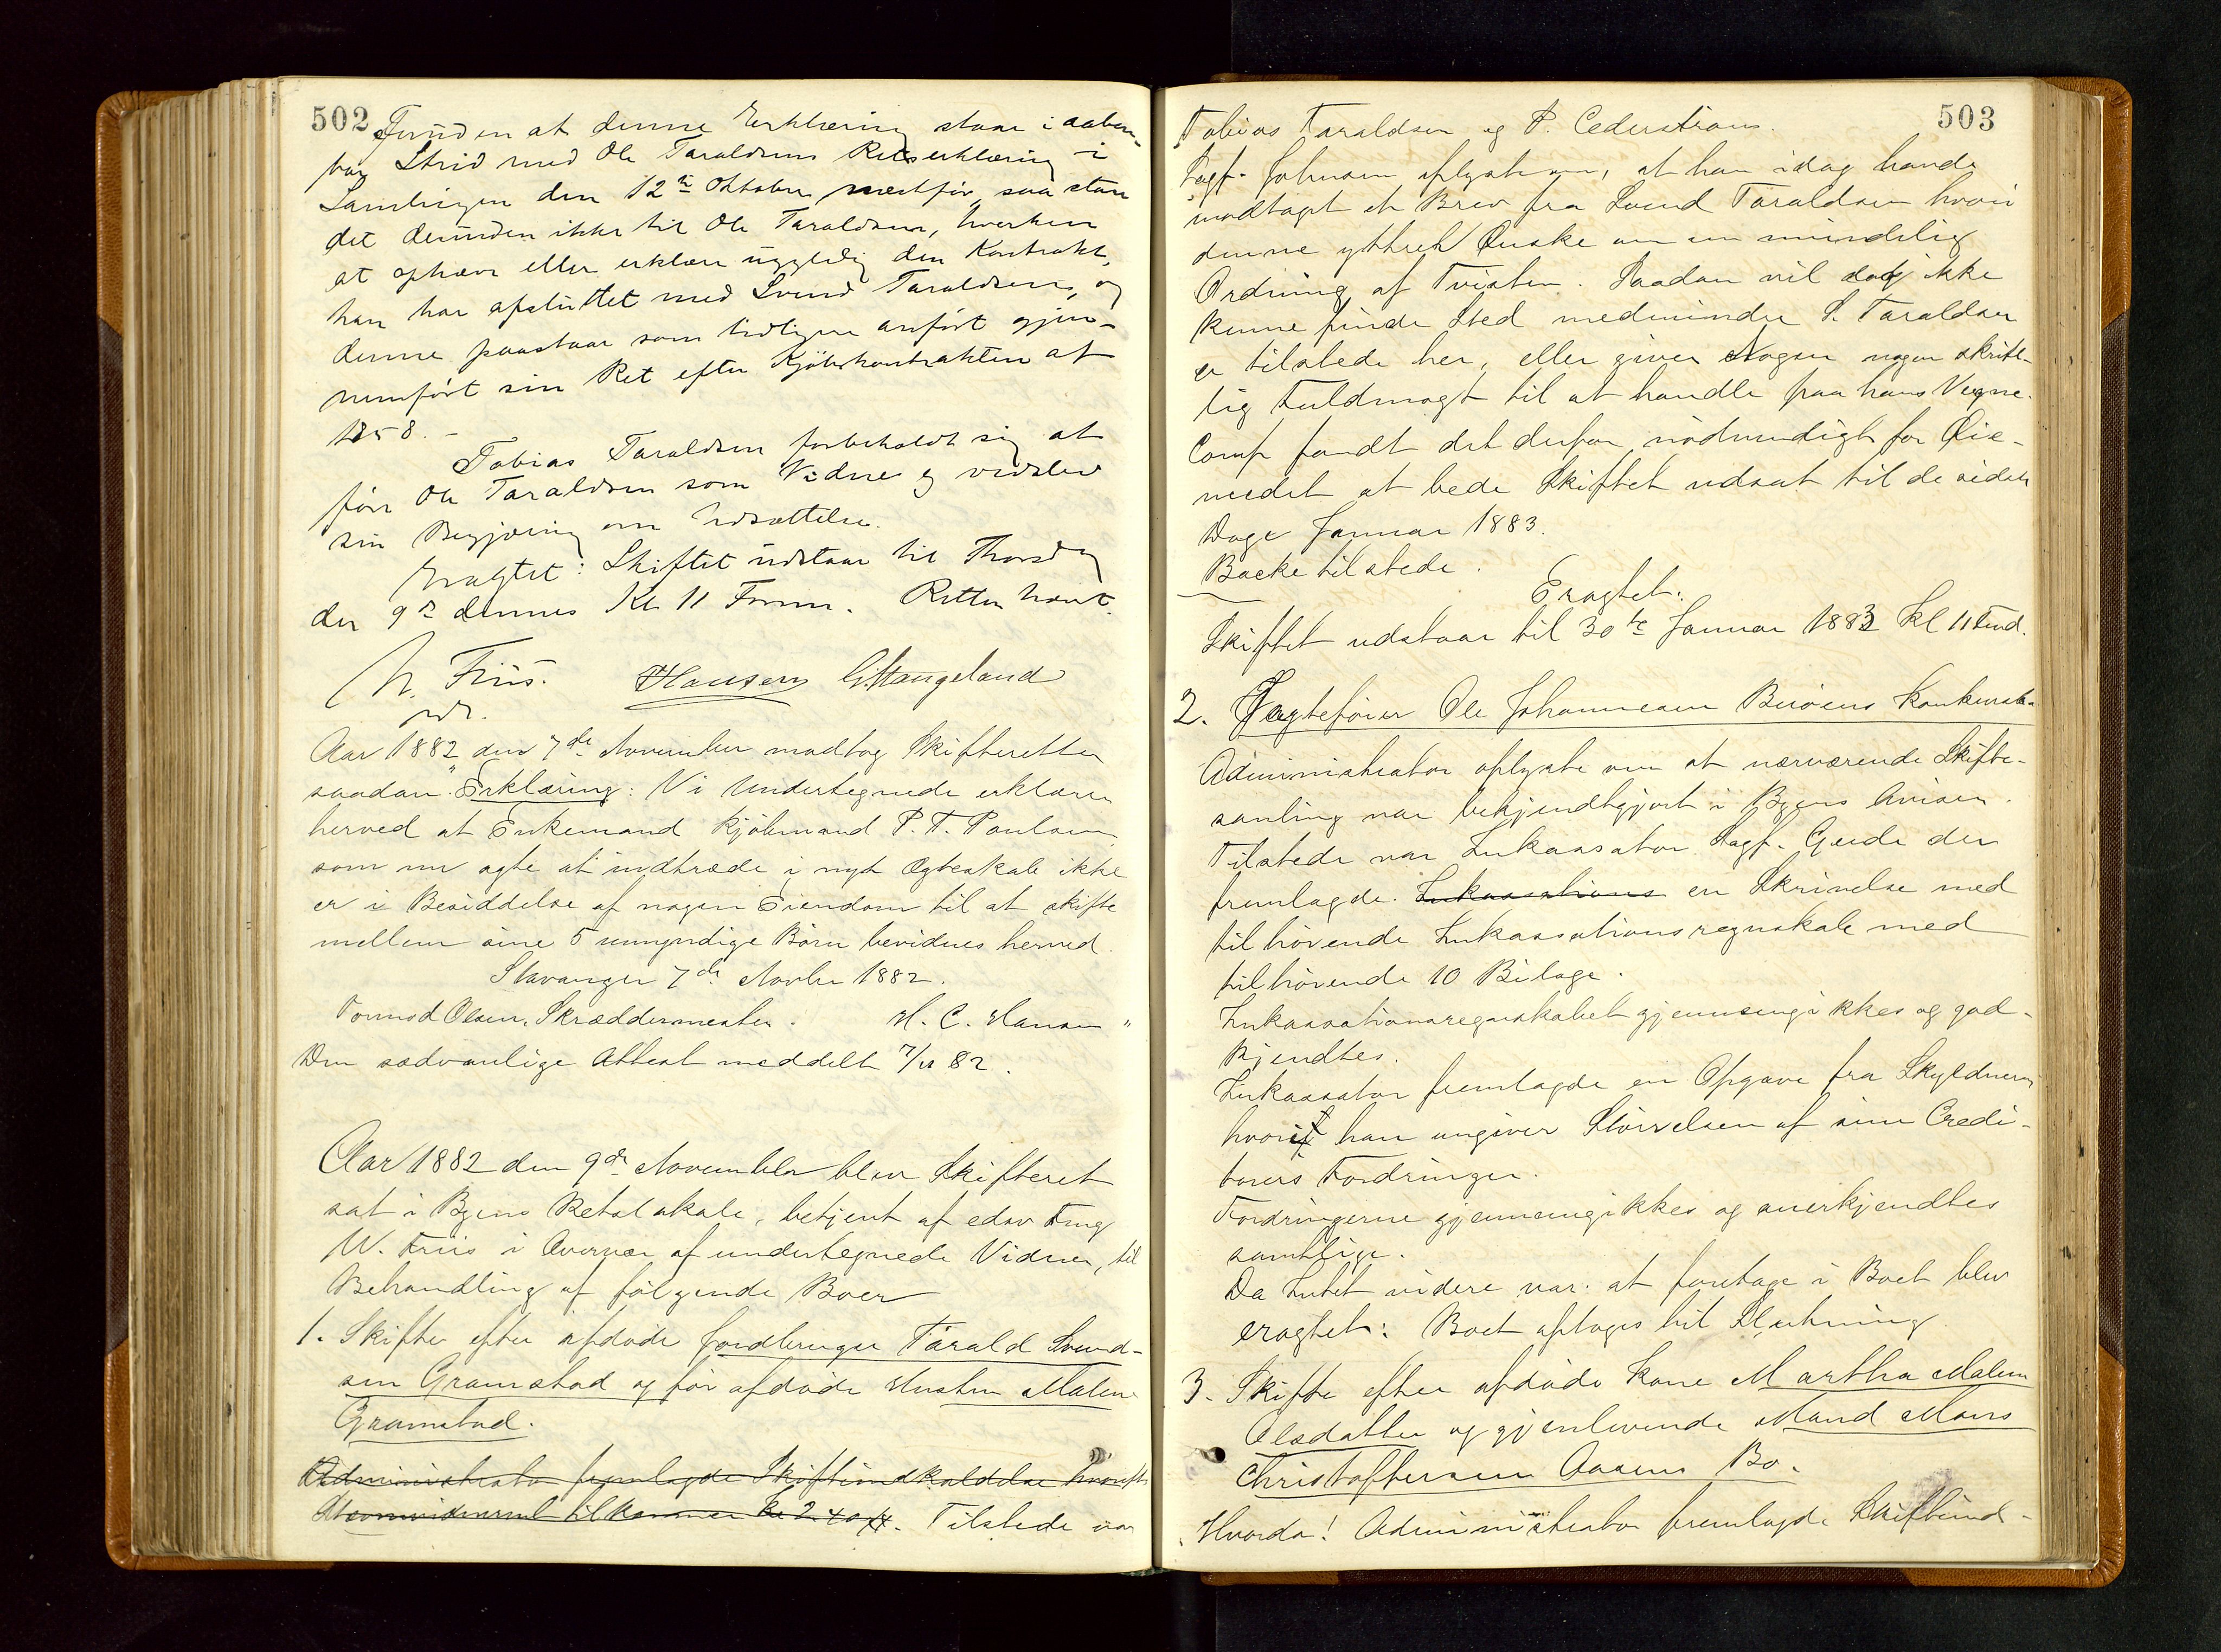 502
Foruden at denne Erklæring staar i aaben-
bar Strid med Ole Taraldsens Retserklæring i
Samlingen den 12te Oktober næstfør, saa staar
det desuden ikke til Ole Taraldsen, hverken
at ophæve eller erklære ugyldig den Kontrakt,
han har afsluttet med Svend Taraldsen, og
denne paastaar som tidligere anført gjen-
nemført sin Ret efter Kjøbekontrakten af
1858. -
Tobias Taraldsen forbeholdt sig at
føre Ole Taraldsen som Vidne og vedblev
sin Begjæring om Udsættelse.
Eragtet: Skiftet udstaar til Thorsdag
den 9de dennes Kl 11 Form. Retten hævet.
W. Friis. Hansen G. Haugeland
Aar 1882 den 7de November modtog Skifteretten
saadan "Erklæring: Vi Undertegnede erklærer
herved at Enkemand Kjøbmand P. T. Poulsen
som nu agte at indtræde i nyt Ægteskab ikke
er i Besiddelse af nogen Eiendom til at skifte
mellem sine 5 umyndige Børn bevidnes herved.
Stavanger 7de Novbr 1882.
Tormod Olsen, Skræddermester. H. C. Hansen "
Den sædvanlige Attest meddelt 7/11 82.
Aar 1882 den 9de November blev Skifteret
sat i Byens Retslokale, betjent af edsv Fmg
W. Friis i Overvær af undertegnede Vidner, til
Behandling af følgende Boer
1. Skifte efter afdøde Jordbruger Tarald Svend-
sen Gramstad og før afdøde Hustru Malene
Gramstad.
Administrator fremlagde Skifteindkaldelse hvorefter
Stævnevidnerne tilkommer Kr 2.40 . Tilstede var
503
Tobias Taraldsen og P. Cederstrøm.
Sagf. Johnsen oplyste om, at han idag havde
modtaget et Brev fra Svend Taraldsen hvori
denne yttret Ønske om en mindelig
Ordning af Tvisten. Saadan vil dog ikke
kunne finde Sted medmindre S. Taraldsen
er tilstede her, eller giver Nogen nogen skrift-
lig Fuldmagt til at handle paa hans Vegne.
Comp fandt det derfor nødvendigt for Øie-
medet at bede Skiftet udsat til de sidste
Dage Januar 1883.
Backe tilstede.
Eragtet.
Skiftet udstaar til 30te Januar 1883 Kl 11 Fmd.
2. Fragtefører Ole Johannesen Buøens Konkursbo
Administrator oplyste om at nærværende Skifte-
samling var bekjendtgjort i Byens Aviser.
Tilstede var Inkassator Sagf. Gjerde der
fremlagde. Inkassations en Skrivelse med
tilhørende Inkassationsregnskab med
tilhørende 10 Bilage.
Inkassationsregnskabet gjennemgikkes og god-
kjendtes.
Inkassator fremlagde en Opgave fra Skyldneren
hvori han angiver Størrelsen af sine Credi-
torers Fordringer.
Fordringerne gjennemgikkes og anerkjendtes
samtlige.
Da Intet videre var at foretage i Boet blev
eragtet: Boet optages til Slutning
3. Skifte efter afdøde Kone Martha Malene
Olsdatter og gjenlevende Mand Mons
Christoffersen Aasens Bo.
Hvorda! Administrator fremlagde Skifteind-